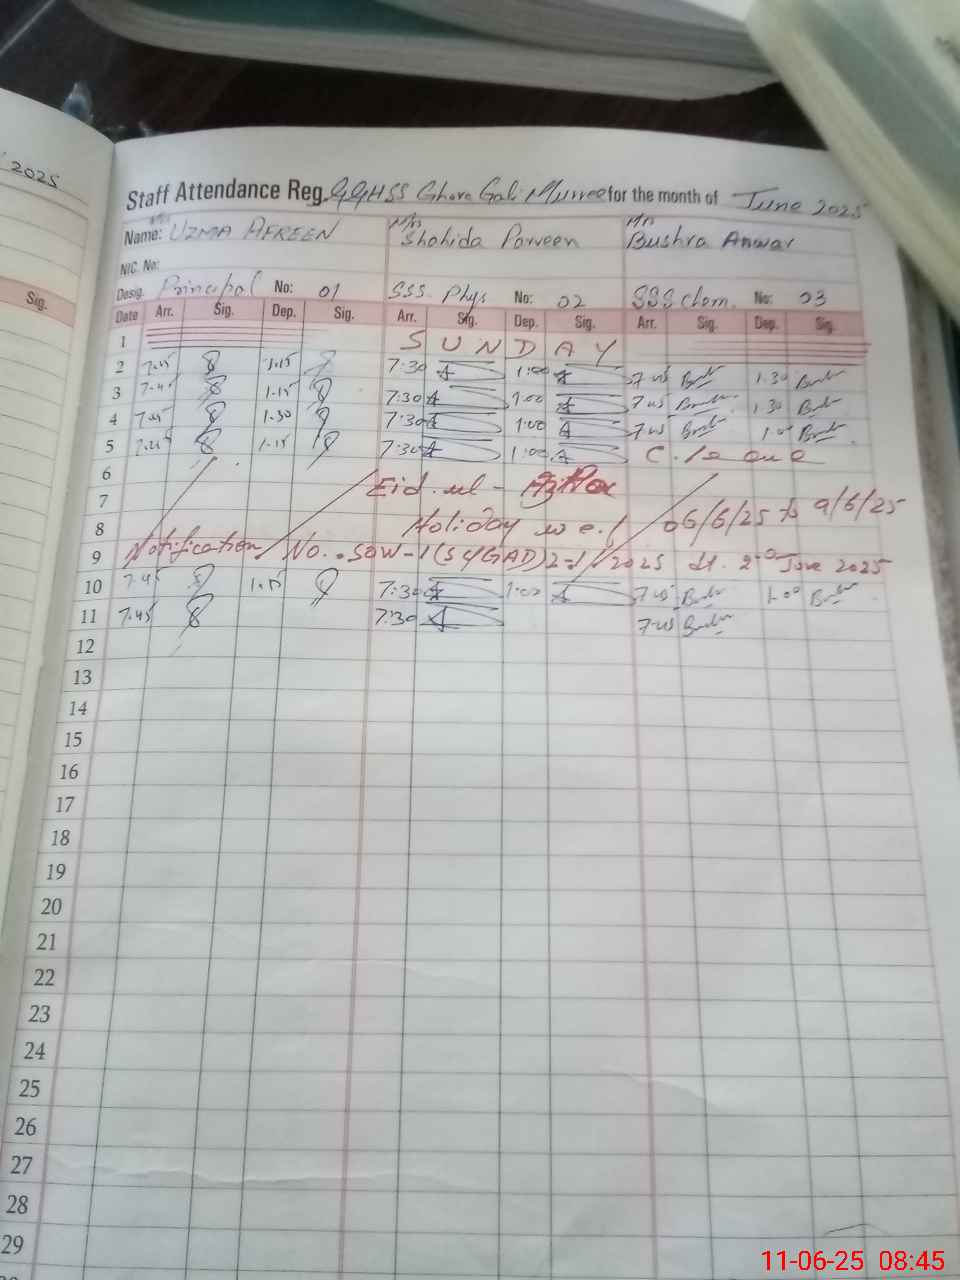 2025
Sig.
Staff Attendance Reg. GGHSS Ghora Gali Murree for the month of June 2025
Name: UZMA AFREEN Shahida Parveen Bushra Anwar
NIC. No:
Desig. Principal No: 01 SSS. Phys No: 02 SSS Chem. No: 03
Date Arr. Sig. Dep. Sig. Arr. Sig. Dep. Sig. Arr. Sig. Dep. Sig.
1 SUNDAY
2 7.45 1.15 7:30 1:00 7.45 1.30
3 7.45 1.15 7:30 1:00 7.45 1.30
4 7.45 1.30 7:30 1:00 7.45 1.00
5 7.45 1.15 7:30 1:00 C. leave
6 Eid-ul-Azha
7
8 Holiday w.e.f 06/6/25 to 9/6/25
9 Notification No. SOW-1(S&GAD) 2025 dt. 2nd June 2025
10 7.45 1.15 7:30 1:00 7.45 1.00
11 7.45 7:30 7.45
12
13
14
15
16
17
18
19
20
21
22
23
24
25
26
27
28
29
11-06-25 08:45